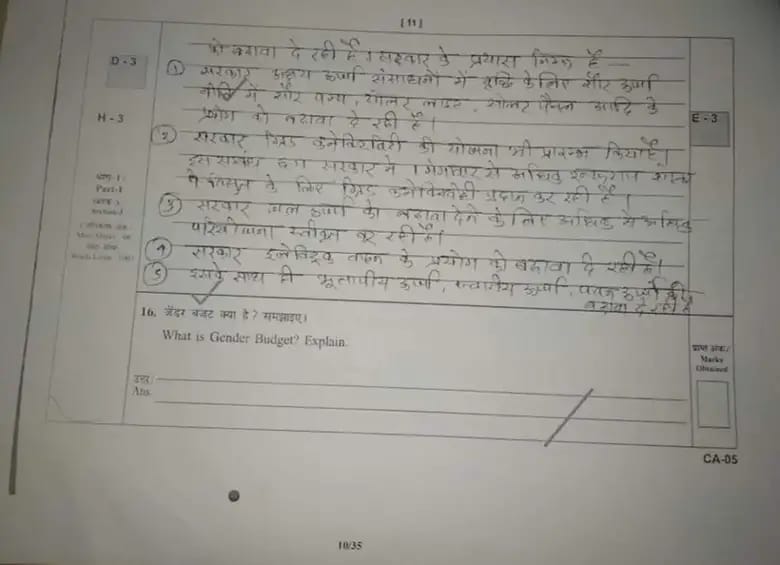 [11]
को बढ़ावा दे रही है। सरकार के प्रयास निम्न हैं —
D - 3
① सरकार, अक्षय ऊर्जा संसाधनों में वृद्धि के लिए सौर ऊर्जा
नीति में सौर पम्प, सोलर लाइट, सोलर पैनल आदि के
प्रयोग को बढ़ावा दे रही है।
H - 3
E - 3
② सरकार, ग्रिड कनेक्टिविटी की योजना भी प्रारम्भ किया है,
इस सम्बन्ध सरकार ने 1 मेगावाट से अधिक
के लिए ग्रिड कनेक्टिविटी प्रदान कर रही है।
भाग-I
Part-I
③ सरकार, जल ऊर्जा को बढ़ावा देने के लिए अधिक से अधिक
परियोजना स्वीकृत कर रही है।
④ सरकार इलेक्ट्रिक वाहन के प्रयोग को बढ़ावा दे रही है।
⑤ इसके साथ ही भूतापीय ऊर्जा, ज्वारीय ऊर्जा, पवन ऊर्जा को
बढ़ावा दे रही है
16. जेंडर बजट क्या है? समझाइए।
What is Gender Budget? Explain.
प्राप्त अंक/
Marks
Obtained
उत्तर/
Ans.
CA-05
10/35